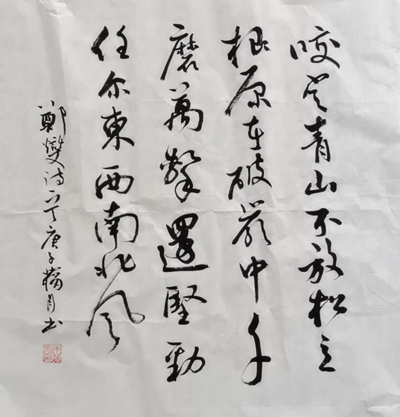 咬定青山不放松立
根原在破巖中千
磨萬擊還堅勁
任尔東西南北风
鄭燮诗一首庚子月书